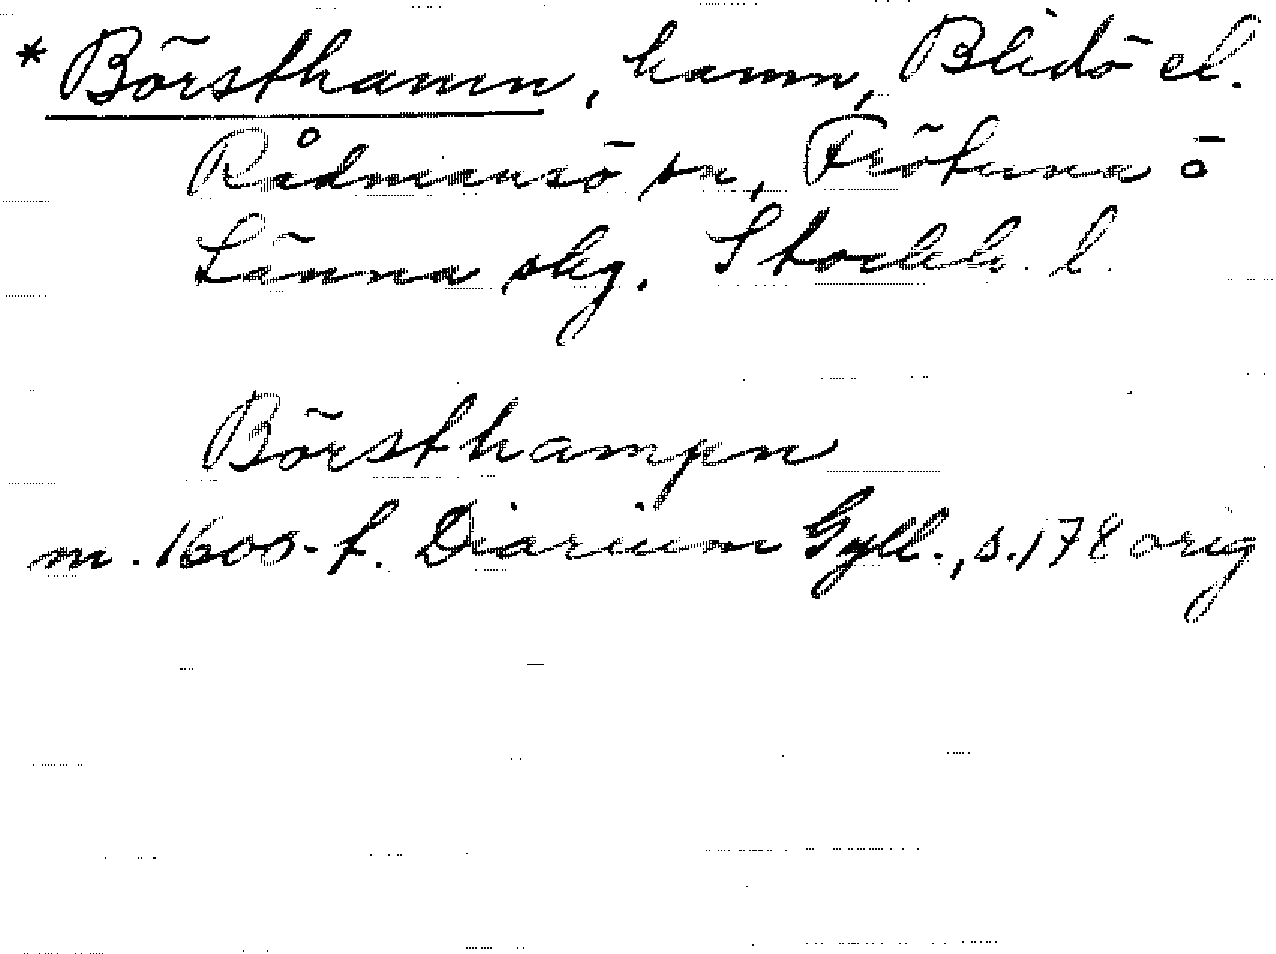 * Börsthamn, hamn, Blidö el.
Rådmansö sn, Frötuna o
Länna skg. Stockh. l.
Börsthampn
m. 1600-t. Diarium Gyll., s. 178 orig